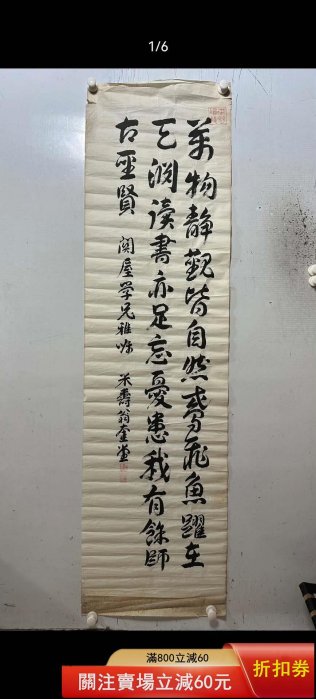 1/6
萬物静觀皆自然鳶飛魚躍在
天淵读書亦足忘憂患我有餘師
古聖賢
関屋学兄雅嘱
米壽翁
滿800立減60
關注賣場立減60元
折扣券